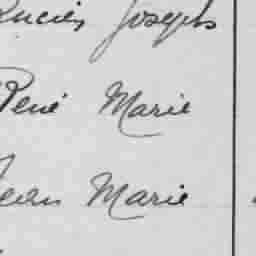 Lucien Joseph
René Marie
Jean Marie